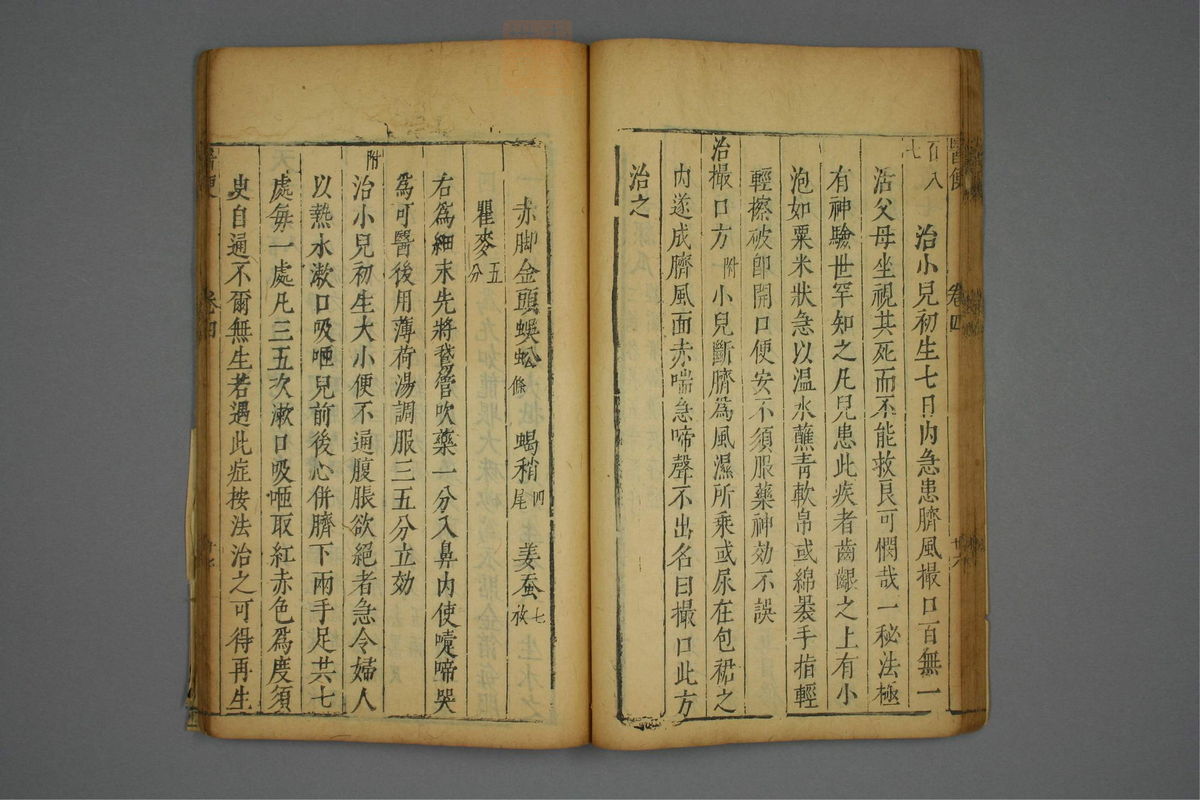 醫便 卷四 廿六
百八七 治小兒初生七日內急患臍風撮口百無一
活父母坐視其死而不能救良可憫哉一秘法極
有神驗世罕知之凡兒患此疾者齒齦之上有小
泡如粟米狀急以温水蘸青軟帛或綿裹手指輕
輕擦破即開口便安不須服藥神効不誤
治撮口方附一小兒斷臍為風濕所乘或尿在包裙之
內遂成臍風面赤喘急啼聲不出名曰撮口此方
治之
赤脚金頭蜈蚣條 蝎稍四尾 姜蚕七枚
瞿麥五分
右為細末先將鵞管吹藥一分入鼻內使嚏啼哭
為可醫後用薄荷湯調服三五分立効
附治小兒初生大小便不通腹脹欲絕者急令婦人
以熱水漱口吸咂兒前後心併臍下兩手足共七
處每一處凡三五次漱口吸咂取紅赤色為度須
臾自通不爾無生若遇此症按法治之可得再生
便 卷四